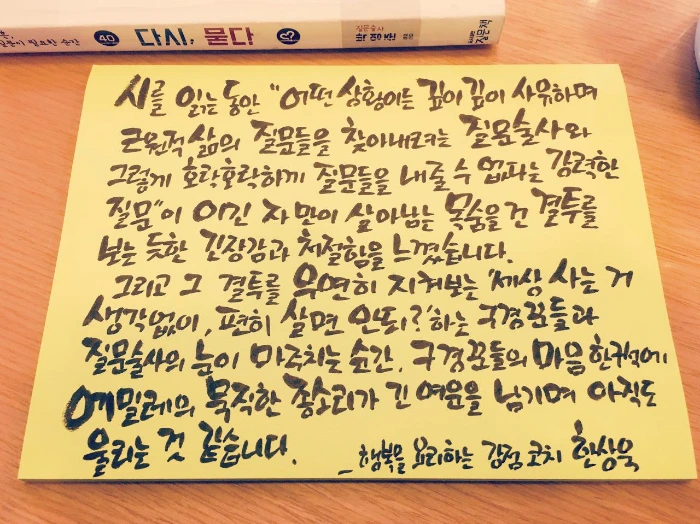 질문이 필요한 순간
다시, 묻다
질문술사
박영준
질문책
시를 읽는 동안 "어떤 상황이든 깊이 깊이 사유하며
근원적 삶의 질문들을 찾아내려는 질문술사와
그렇게 호락호락하게 질문들을 내줄 수 없다는 강력한
질문"이 이긴 자만이 살아남는 목숨을 건 결투를
보는 듯한 긴장감과 처절함을 느꼈습니다.
그리고 그 결투를 우연히 지켜보는 '세상 사는 거
생각없이, 편히 살면 안돼?'하는 구경꾼들과
질문술사의 눈이 마주치는 순간, 구경꾼들의 마음 한켠에
에밀레의 묵직한 종소리가 긴 여운을 남기며 아직도
울리는 것 같습니다.
_행복을 요리하는 감정 코치 한상욱